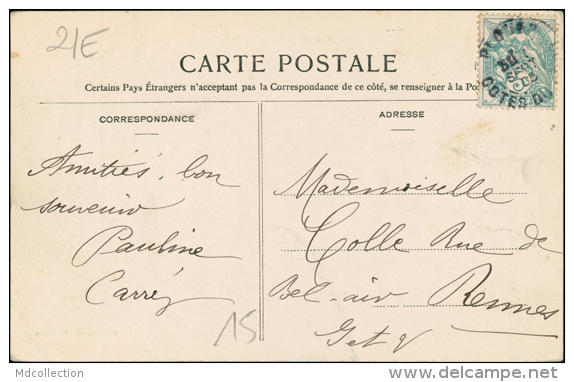 2/E
CARTE POSTALE
Certains Pays Étrangers n'acceptant pas la Correspondance de ce côté, se renseigner à la Po
CORRESPONDANCE
Amitiés, bon
souvenir
Pauline
Carréz
15
ADRESSE
Mademoiselle
Colle Rue de
Bel-air Rennes
I et V
30
SEPT
COTES DU
Mdcollection
www.delcampe.net